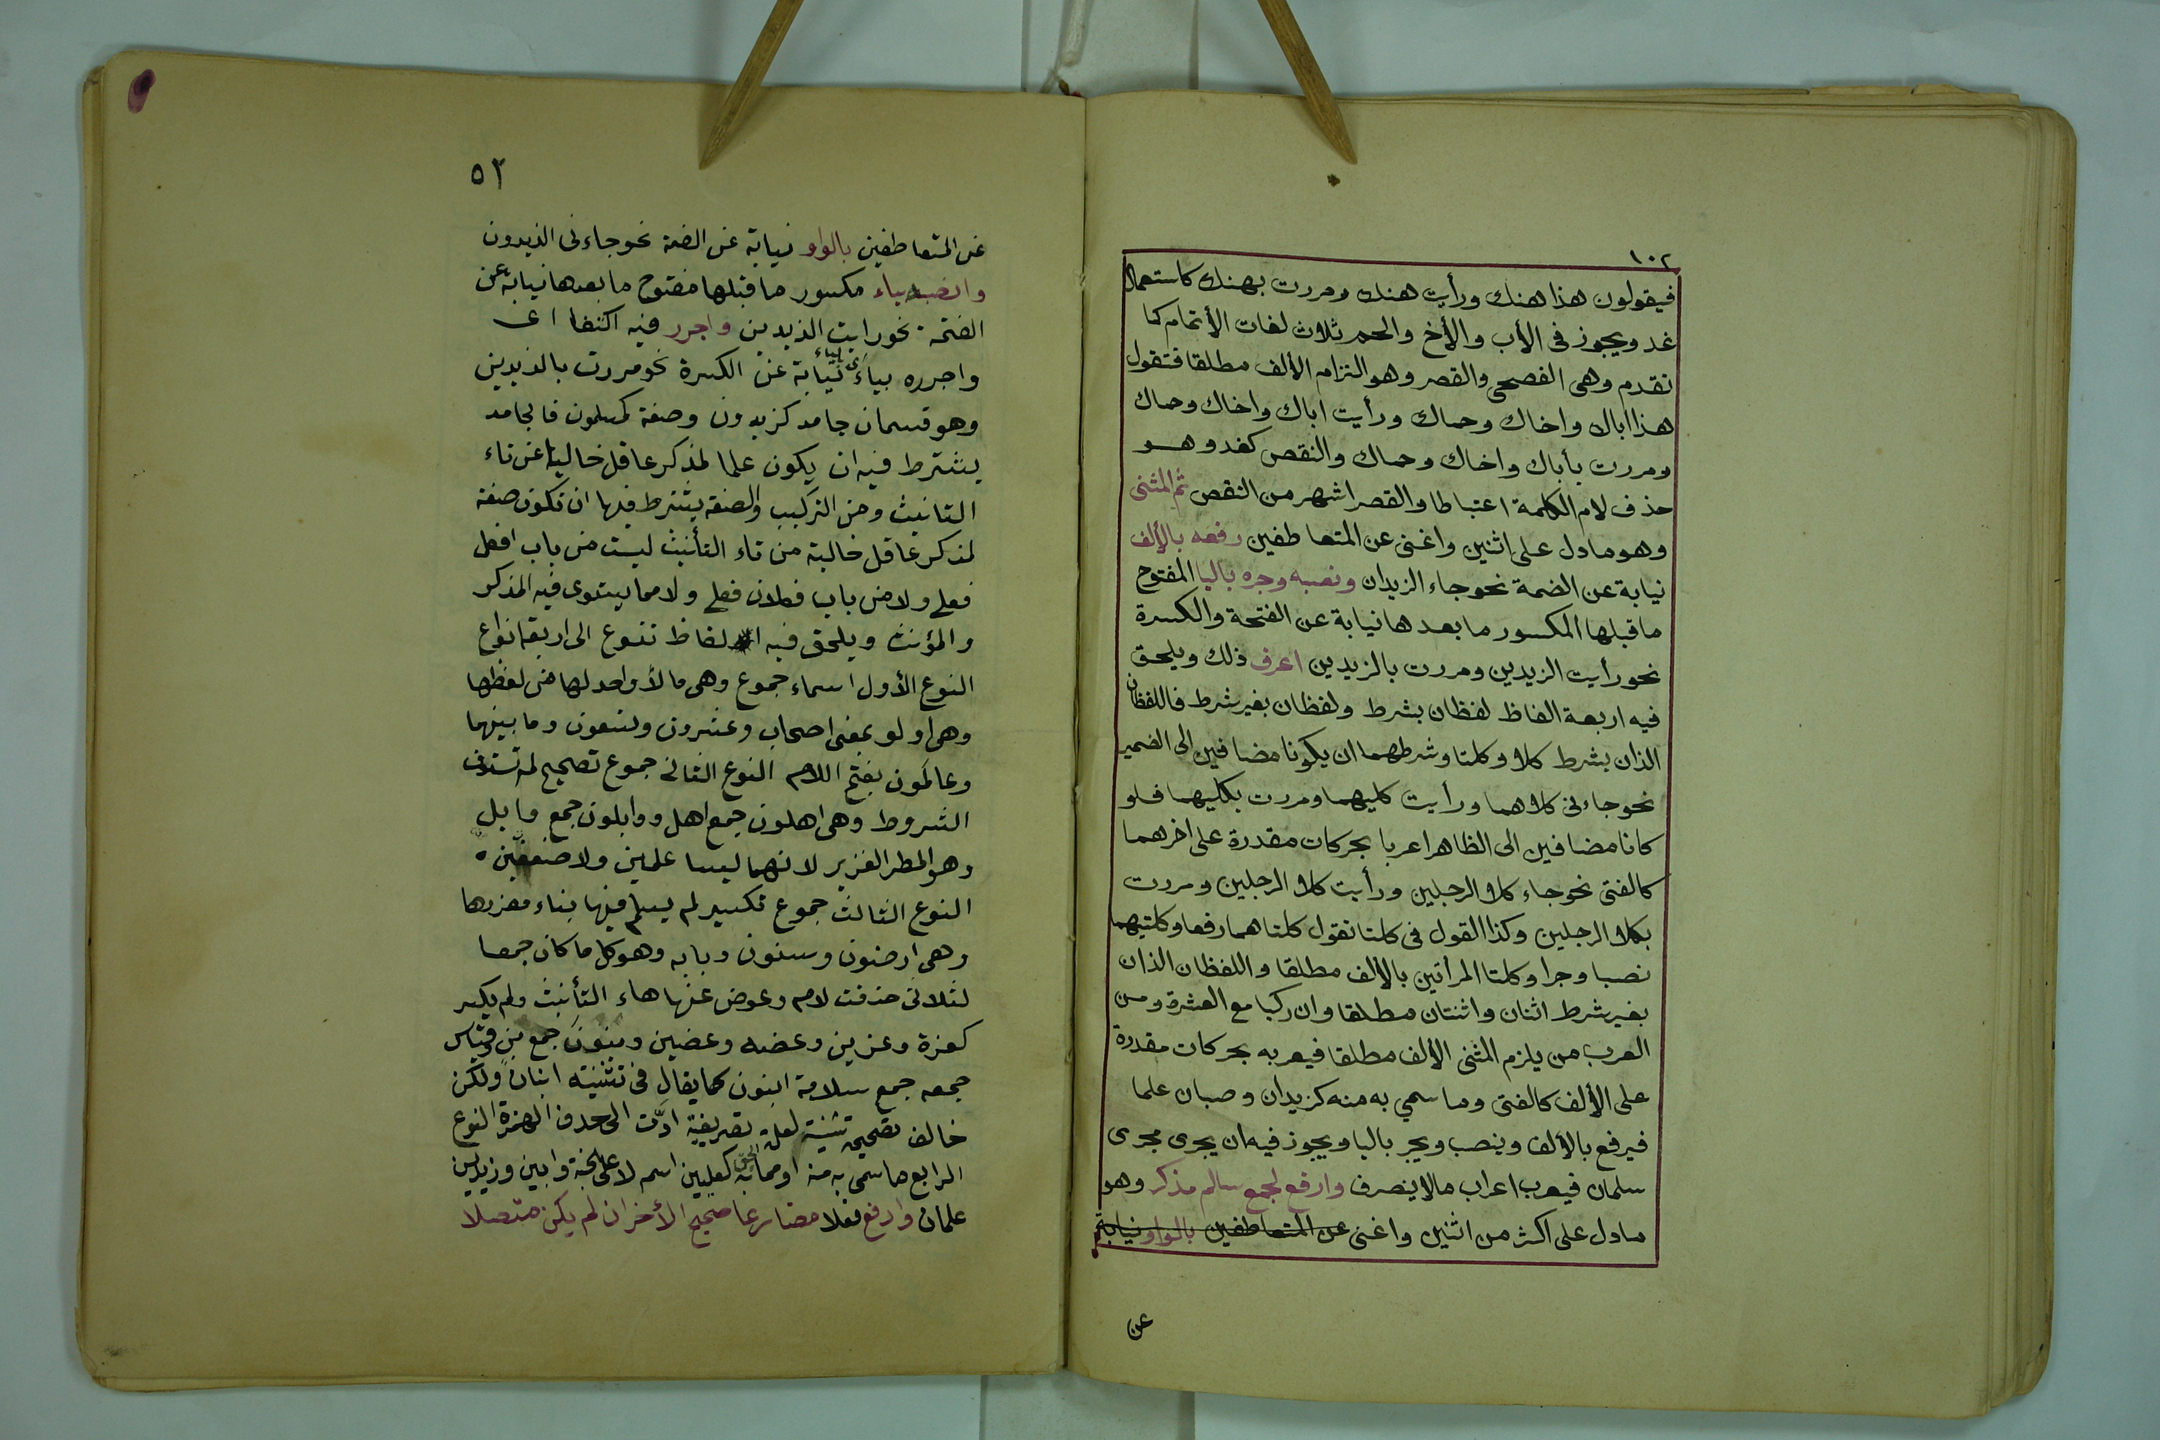 ١٠٢
فيقولون هذا هنك ورأيت هنك ومررت بهنك كاستعمال
غد ويجوز فى الأب والأخ والحم ثلاث لغات الأتمام كما
تقدم وهى الفصحى والقصر وهو التزام الألف مطلقا فتقول
هذا اباك واخاك وحماك ورأيت اباك واخاك وحماك
ومررت بأباك واخاك وحماك والنقص كغد وهو
حذف لام الكلمة اعتباطا والقصر اشهر من النقص ثم المثنى
وهو مادل على اثنين واغنى عن المتعاطفين رفعه بالألف
نيابة عن الضمة نحو جاء الزيدان ونصبه وجره باليا المفتوح
ماقبلها المكسور مابعدها نيابة عن الفتحة والكسرة
نحو رأيت الزيدين ومررت بالزيدين اعرف ذلك ويلحق
فيه اربعة الفاظ لفظان بشرط ولفظان بغير شرط فاللفظان
الذان بشرط كلا وكلتا وشرطهما ان يكونا مضافين الى الضمير
نحو جاءنى كلاهما ورأيت كليهما ومررت بكليهما فلو
كانا مضافين الى الظاهر اعربا بحركات مقدرة على اخرهما
كالفتى نحو جاء كلا الرجلين ورأيت كلا الرجلين ومررت
بكلا الرجلين وكذا القول فى كلتا تقول كلتاهما رفعا وكلتيهما
نصبا وجرا وكلتا المرأتين بالألف مطلقا واللفظان الذان
بغير شرط اثنان واثنتان مطلقا وان ركبا مع العشرة ومن
العرب من يلزم المثنى الألف مطلقا فيعربه بحركات مقدرة
على الألف كالفتى وما سمي به منه كزيدان وصبان علما
فيرفع بالألف وينصب ويجر باليا ويجوز فيه ان يجرى مجرى
سلمان فيعرب اعراب مالاينصرف وارفع لجمع سالم مذكر وهو
مادل على اكثر من اثنين واغنى عن المتعاطفين بالواو نيابة
عن
٥٢
عن المتعاطفين بالواو نيابة عن الضمة نحو جاءنى الذيدون
وانصبه بياء مكسور ماقبلها مفتوح مابعدها نيابة عن
الفتحة نحو رايت الذيدين واجرر فيه اكتفا اى
واجرره بياء اى بالياء نيابة عن الكسرة نحو مررت بالذيدين
وهو قسمان جامد كزيدون وصفة كمسلمون فالجامد
يشترط فيه ان يكون علما لمذكر عاقل خاليا عن تاء
التانيث ومن التركيب والصفة يشترط فيها ان تكون صفة
لمذكر عاقل خالية من تاء التأنيث ليست من باب افعل
فعلى ولا من باب فعلان فعلى ولا مما يستوى فيه المذكر
والمؤنث ويلحق فيه الفاظ تنوع الى اربعة انواع
النوع الأول اسماء جموع وهى مالأ واحد لها من لفظها
وهى اولو بمعنى اصحاب وعشرون وتسعون وما بينهما
وعالمون بفتح اللام النوع الثانى جموع تصحيح لم تستوف
الشروط وهى اهلون جمع اهل ووابلون جمع وابل
وهو المطر الغزير لانهما ليسا علمين ولا صفتين
النوع الثالث جموع تكسير لم يسلم فيها بناء مفردها
وهى ارضون وسنون وبابه وهو كل ما كان جمعا
لثلاثى حذفت لام وعوض عنها هاء التأنيث ولم يكسر
كعزة وعزين وعضه وعضين وبنون جمع بن وقياس
جمعه جمع سلامة ابنون كما يقال فى تثنيته ابنان ولكن
خالف تصحيحه تثنية لعلة تصريفية ادّت الى حدف الهمزة النوع
الرابع ما سمى به منه او مما الحق به كعليين اسم لاعلى الجنة وابين وزيدين
علمان وارفع فعلا مضارعا صحيح الأخر ان لم يكن متصلا